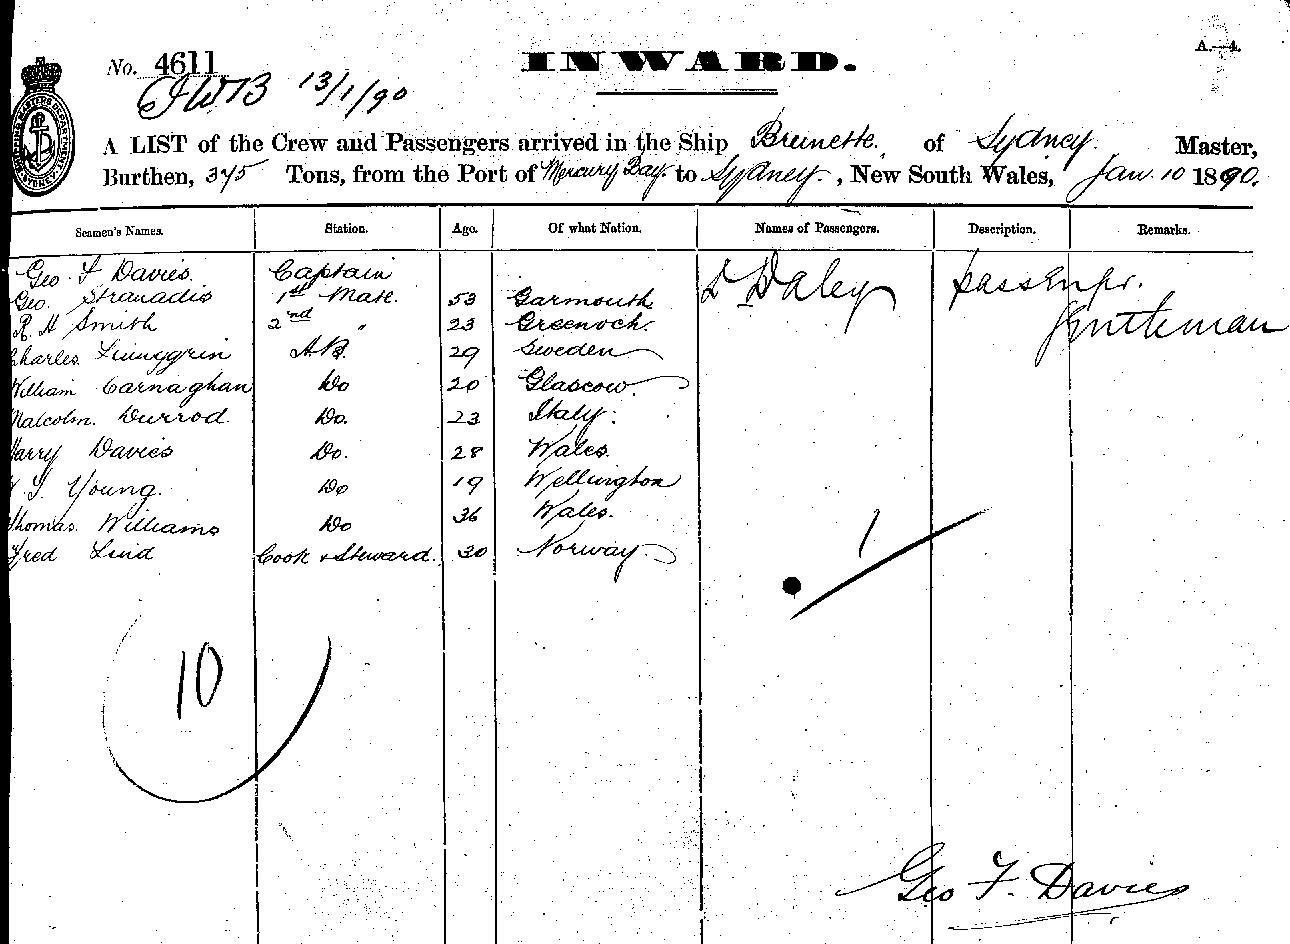 A.—4.
No. 4611
INWARD.
JWB 13/1/90
A LIST of the Crew and Passengers arrived in the Ship Brunette. of Sydney. Master,
Burthen, 345 Tons, from the Port of Mercury Bay. to Sydney. , New South Wales, Jan. 10 1890.
Seamen's Names. Station. Age. Of what Nation. Names of Passengers. Description. Remarks.
Geo F Davies. Captain D Daley passenger.
Geo. Stranadis 1st Mate. 53 Garmouth
R. H Smith 2nd " 23 Greenoch. Gentleman
Charles. Liunggrin AB. 29 Sweden
William Carnaghan Do 20 Glascow.
Malcolm. Durrod. Do. 23 Italy.
Harry Davies Do. 28 Wales.
Young. Do 19 Wellington
Thomas. Williams Do 36 Wales.
Fred Lind Cook & Steward. 30 Norway.
1
10
Geo F. Davies